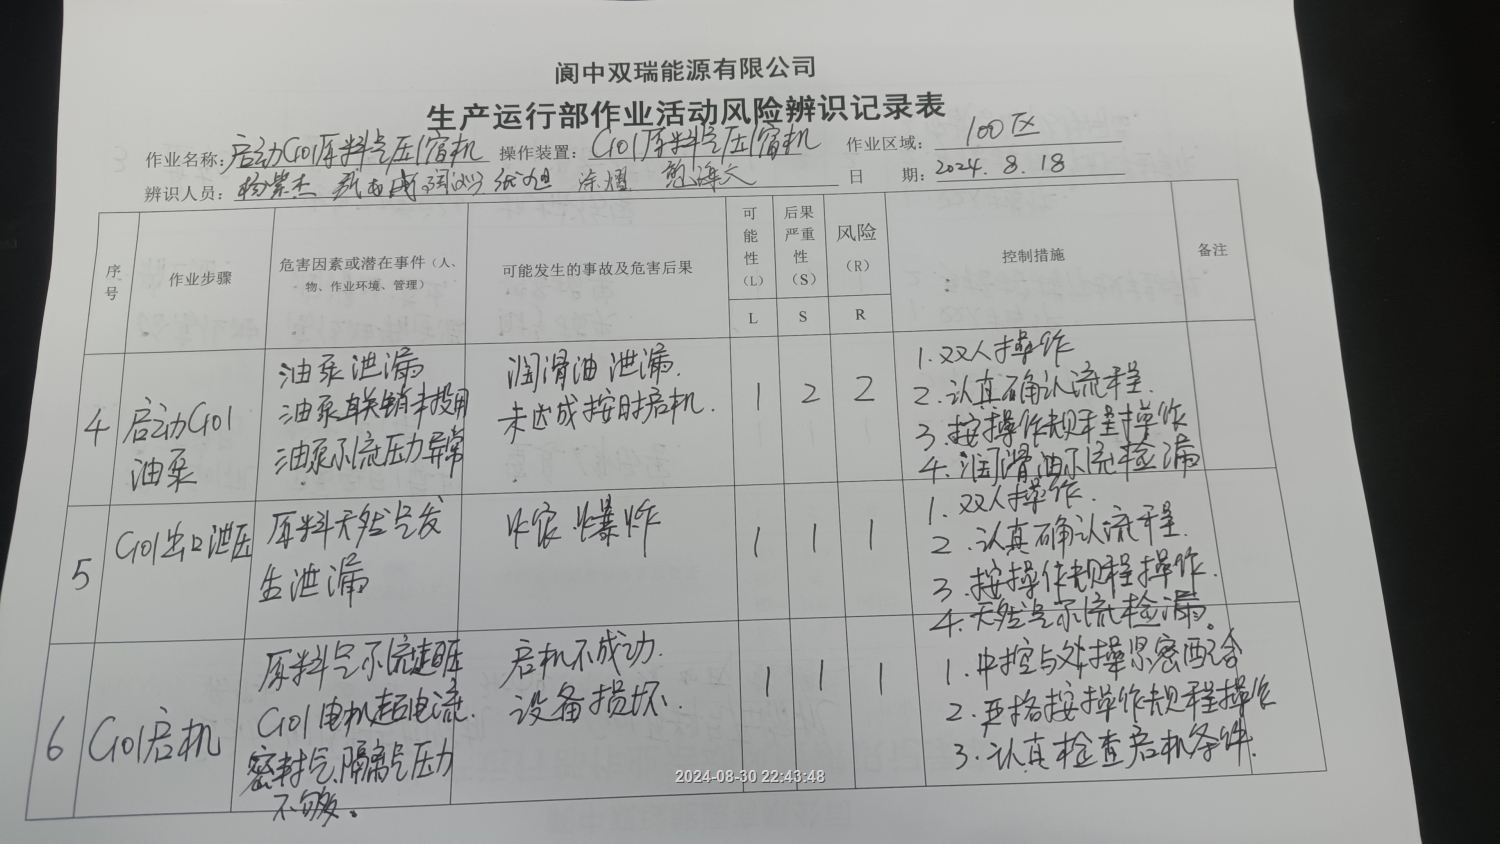 阆中双瑞能源有限公司
生产运行部作业活动风险辨识记录表
作业名称: 启动G01原料气压缩机 操作装置: G01原料气压缩机 作业区域: 100区
辨识人员: 杨紫杰 日 期: 2024.8.18
序号 作业步骤 危害因素或潜在事件（人、物、作业环境、管理） 可能发生的事故及危害后果 可能性（L） 后果严重性（S） 风险（R） 控制措施 备注
L S R
4 启动G01油泵
油泵泄漏
油泵联锁未投用
油泵系统压力异常
润滑油泄漏.
未达成按时启机.
1 2 2
1.双人操作
2.认真确认流程.
3.按操作规程操作
4.润滑油系统检漏
5 G01出口泄压
原料天然气发
生泄漏
火灾.爆炸
1 1 1
1.双人操作.
2.认真确认流程.
3.按操作规程操作.
4.天然气系统检漏。
6 G01启机
原料气系统超压
G01电机超电流.
密封气,隔离气压力
不够。
启机不成功.
设备损坏.
1 1 1
1.中控与外操紧密配合
2.严格按操作规程操作
3.认真检查启机条件.
2024-08-30 22:43:48